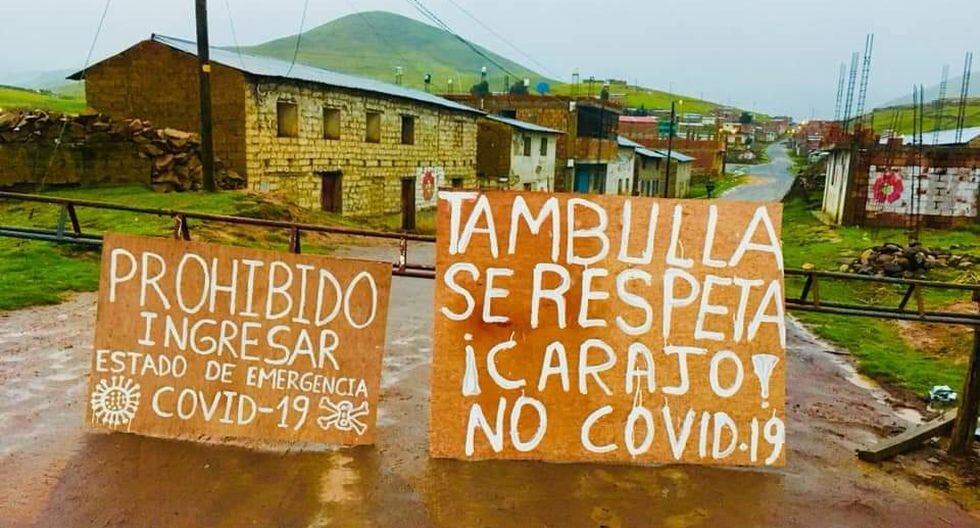 PROHIBIDO
INGRESAR
ESTADO DE EMERGENCIA
COVID-19
TAMBULLA
SE RESPETA
¡CARAJO!
NO COVID.19